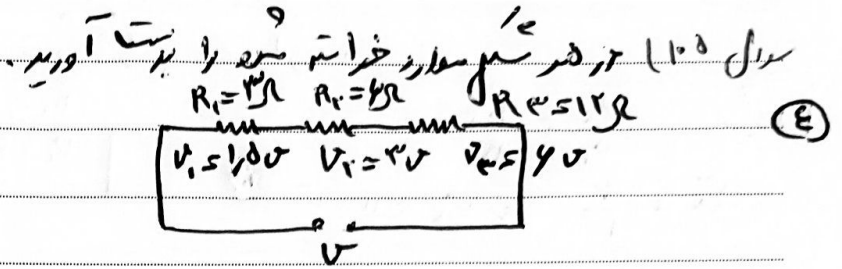 سوال ۱۰۵) در هر شکل موارد خواسته شده را بدست آورید.
R₁=۳Ω R₂=۶Ω R۳=۱۲Ω
④
V₁=۱,۵v V₂=۳v V۳=۶v
V